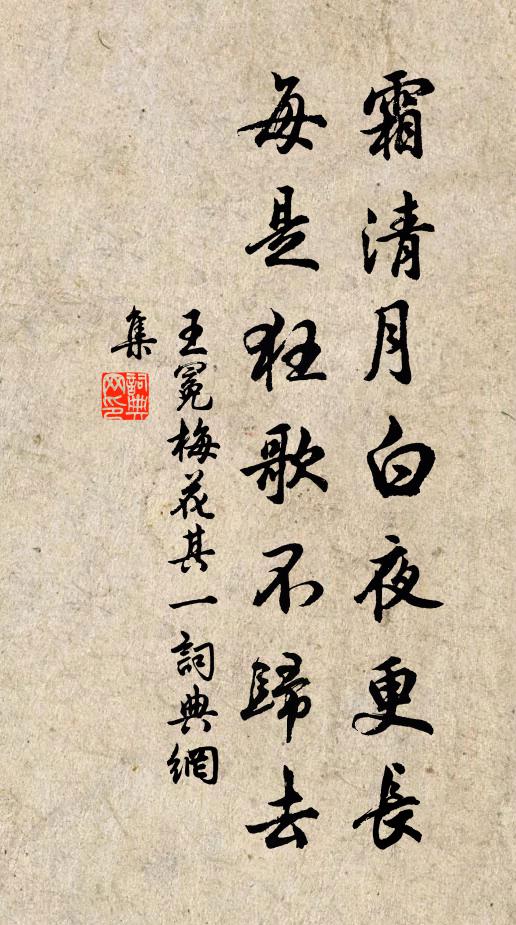 霜清月白夜更長
每是狂歌不歸去
王冕梅花其一詞典網
集
詞典網印